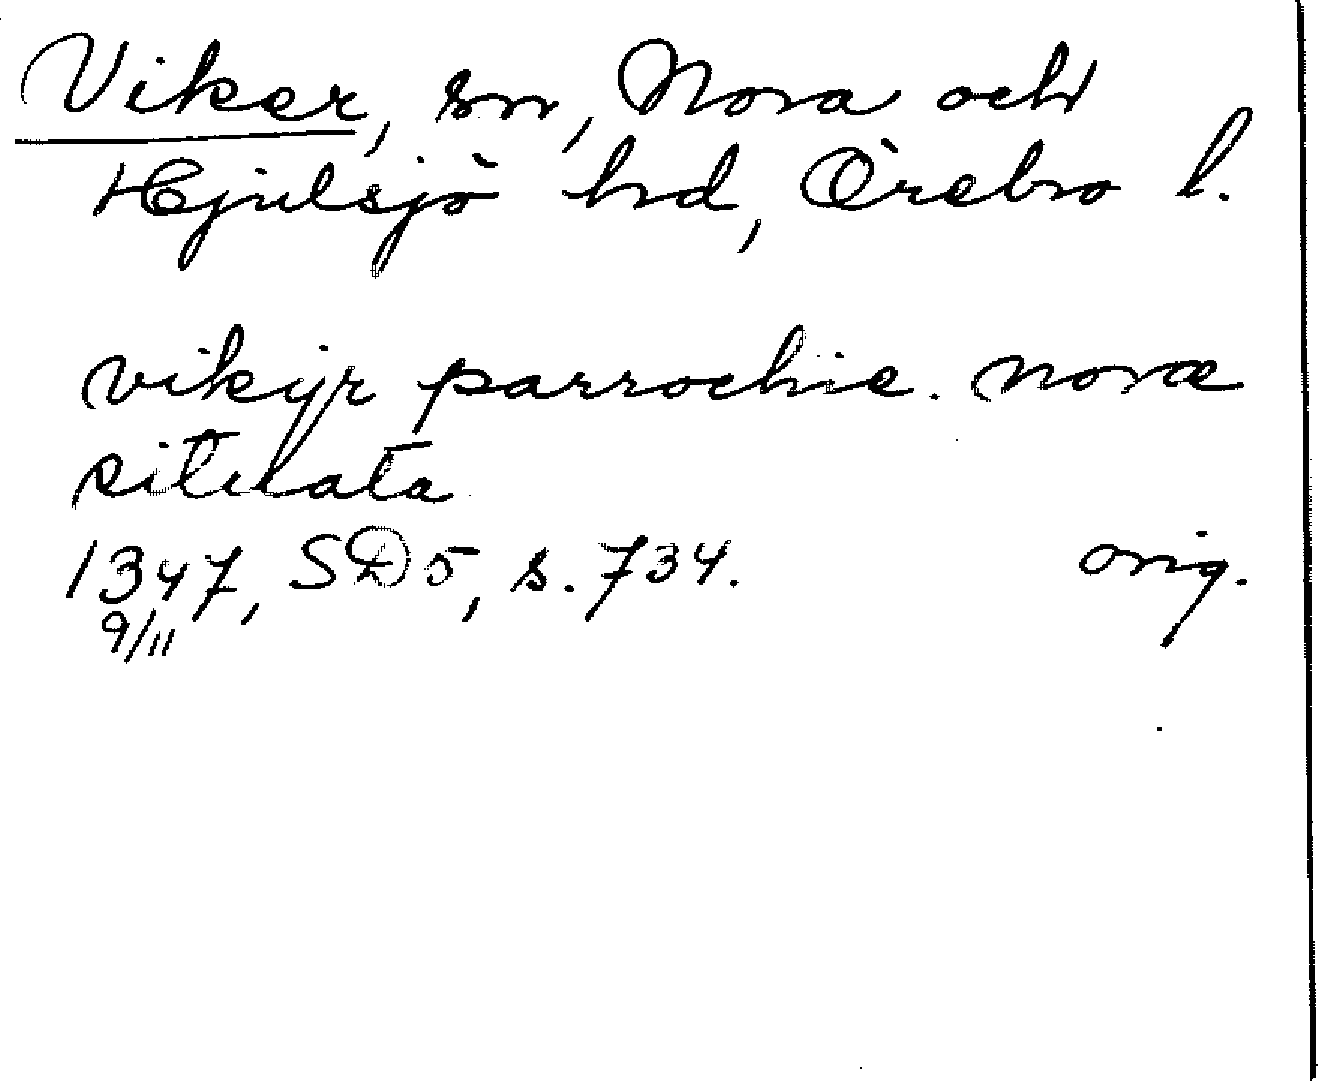 Viker, sn, Nora och
Hjulsjö hd, Örebro l.
vikyr parrochie. noræ
situata
1347, SD5, s. 734. orig.
9/11